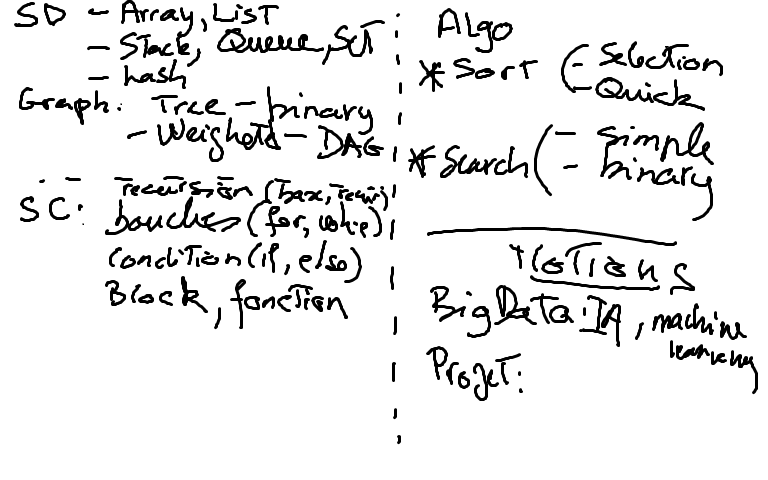 SD - Array, List
- Stack, Queue, Set
- hash
Graph: Tree - binary
- Weigheted - DAG
SC: recursion (base, recur)
boucles (for, while)
condition (if, else)
Block, fonction
Algo
* Sort ( - Selection
- Quick
* Search ( - simple
- binary
Notions
Big Data: IA, machine
learning
Projet: